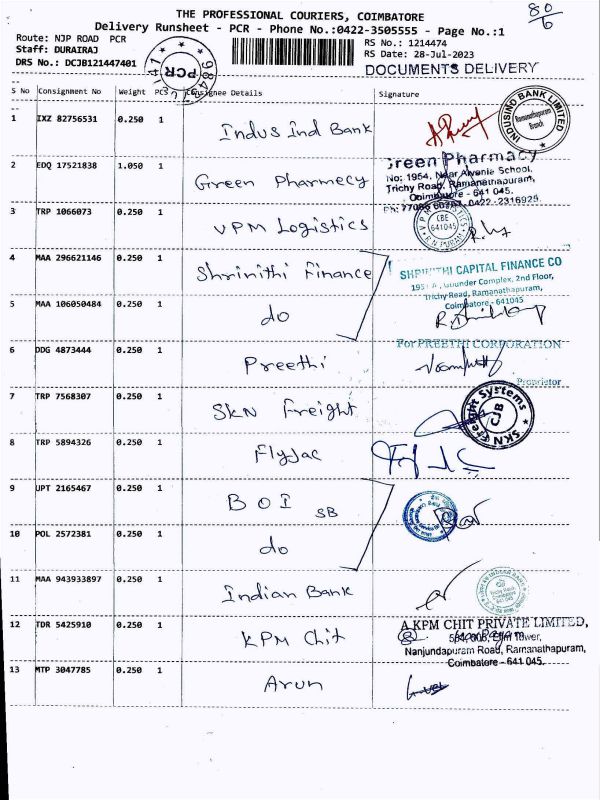 80/6
THE PROFESSIONAL COURIERS, COIMBATORE
Delivery Runsheet - PCR - Phone No.:0422-3505555 - Page No.:1
Route: NJP ROAD PCR
Staff: DURAIRAJ
DRS No.: DCJB121447401
PCR
RS No.: 1214474
RS Date: 28-Jul-2023
DOCUMENTS DELIVERY
S No Consignment No Weight PCS Consignee Details Signature
1 IXZ 82756531 0.250 1 Indus Ind Bank
INDUSIND BANK LIMITED
Ramanathapuram
Branch
2 EDQ 17521838 1.050 1 Green Pharmecy
Green Pharmacy
No: 1954, Near Alvernia School,
Trichy Road, Ramanathapuram,
Coimbatore - 641 045.
0422-2316925
3 TRP 1066073 0.250 1 VPM Logistics
CBE
641045
4 MAA 296621146 0.250 1 Shrinithi Finance
SHRINITHI CAPITAL FINANCE CO
Gounder Complex, 2nd Floor,
Trichy Road, Ramanathapuram,
Coimbatore - 641045
5 MAA 106050484 0.250 1 do
6 DDG 4873444 0.250 1 Preethi
For PREETHI CORPORATION
Proprietor
7 TRP 7568307 0.250 1 SKN Freight
SKN Freight Systems
CJB
8 TRP 5894326 0.250 1 Flyjac
9 UPT 2165467 0.250 1 BOI SB
10 POL 2572381 0.250 1 do
11 MAA 943933897 0.250 1 Indian Bank
12 TDR 5425910 0.250 1 KPM Chit
A KPM CHIT PRIVATE LIMITED,
Tower,
Nanjundapuram Road, Ramanathapuram,
Coimbatore - 641 045.
13 MTP 3047785 0.250 1 Arun